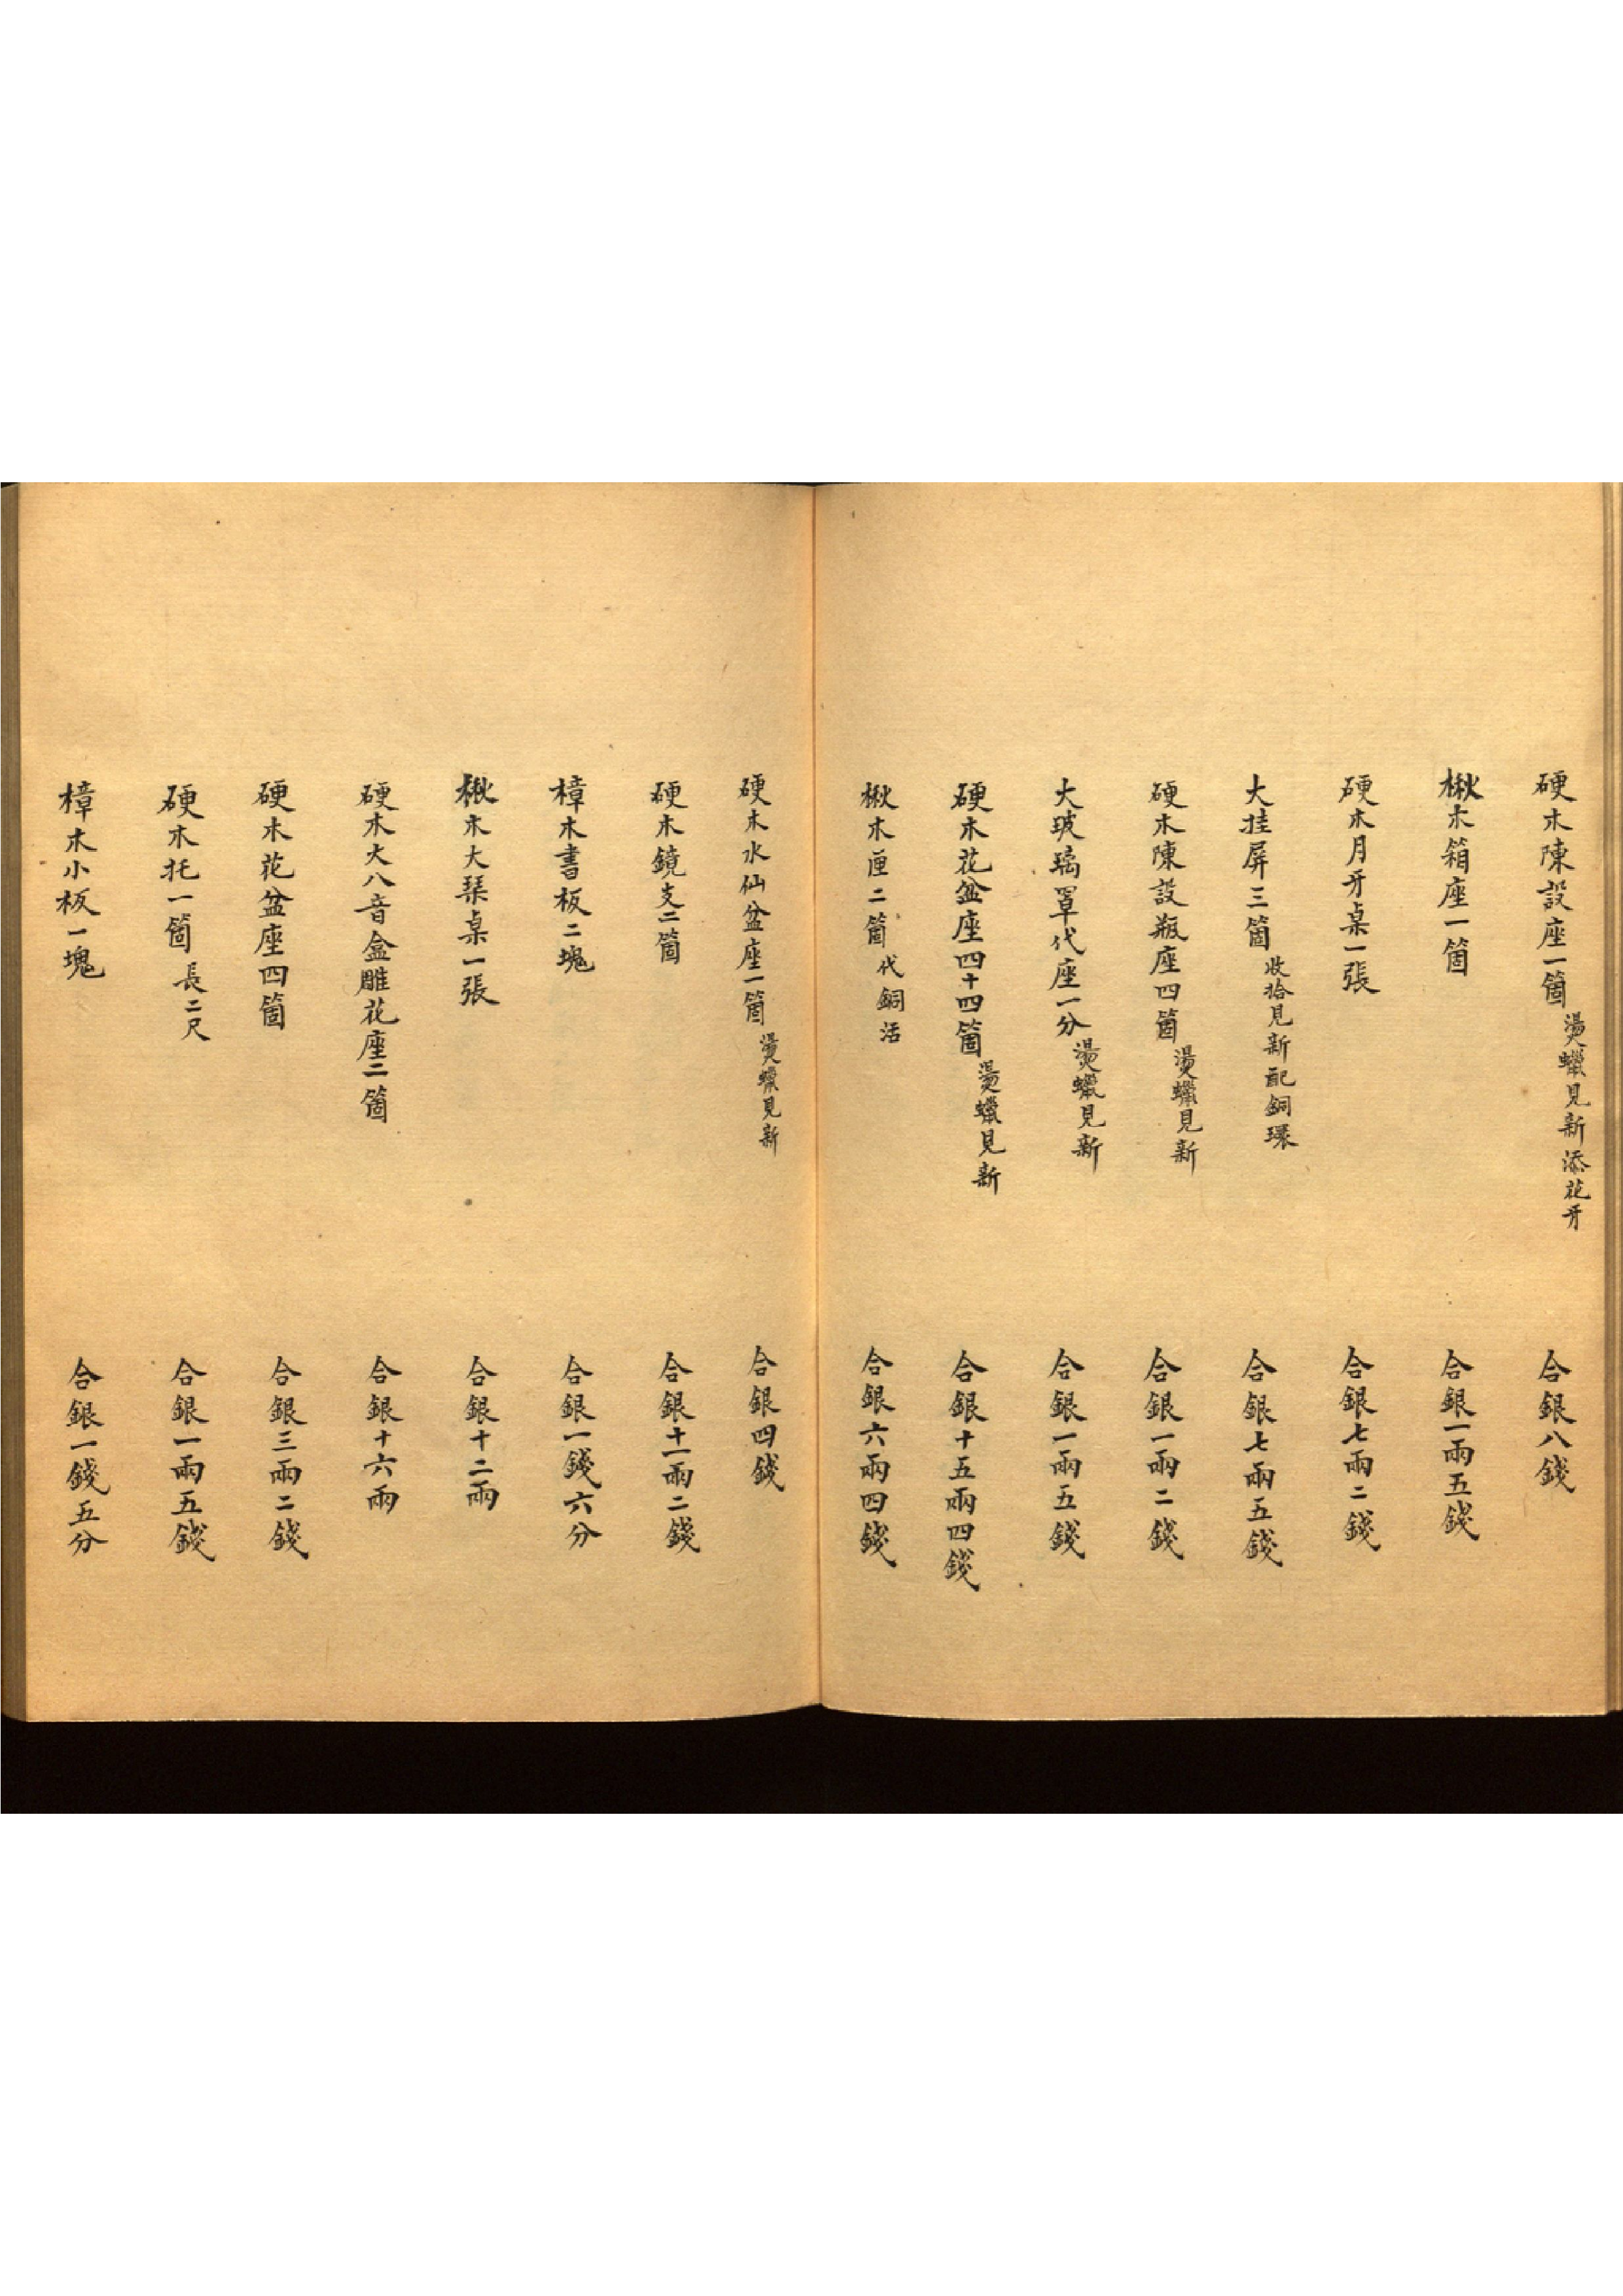 硬木陳設座一箇燙蠟見新添花牙 合銀八錢
楸木箱座一箇 合銀一兩五錢
硬木月牙桌一張 合銀七兩二錢
大挂屏三箇收拾見新配銅環 合銀七兩五錢
硬木陳設瓶座四箇燙蠟見新 合銀一兩二錢
大玻璃罩代座一分燙蠟見新 合銀一兩五錢
硬木花盆座四十四箇燙蠟見新 合銀十五兩四錢
楸木匣二箇代銅活 合銀六兩四錢
硬木水仙盆座一箇燙蠟見新 合銀四錢
硬木鏡支二箇 合銀十一兩二錢
樟木書板二塊 合銀一錢六分
楸木大琹桌一張 合銀十二兩
硬木大八音盒雕花座二箇 合銀十六兩
硬木花盆座四箇 合銀三兩二錢
硬木托一箇長二尺 合銀一兩五錢
樟木小板一塊 合銀一錢五分